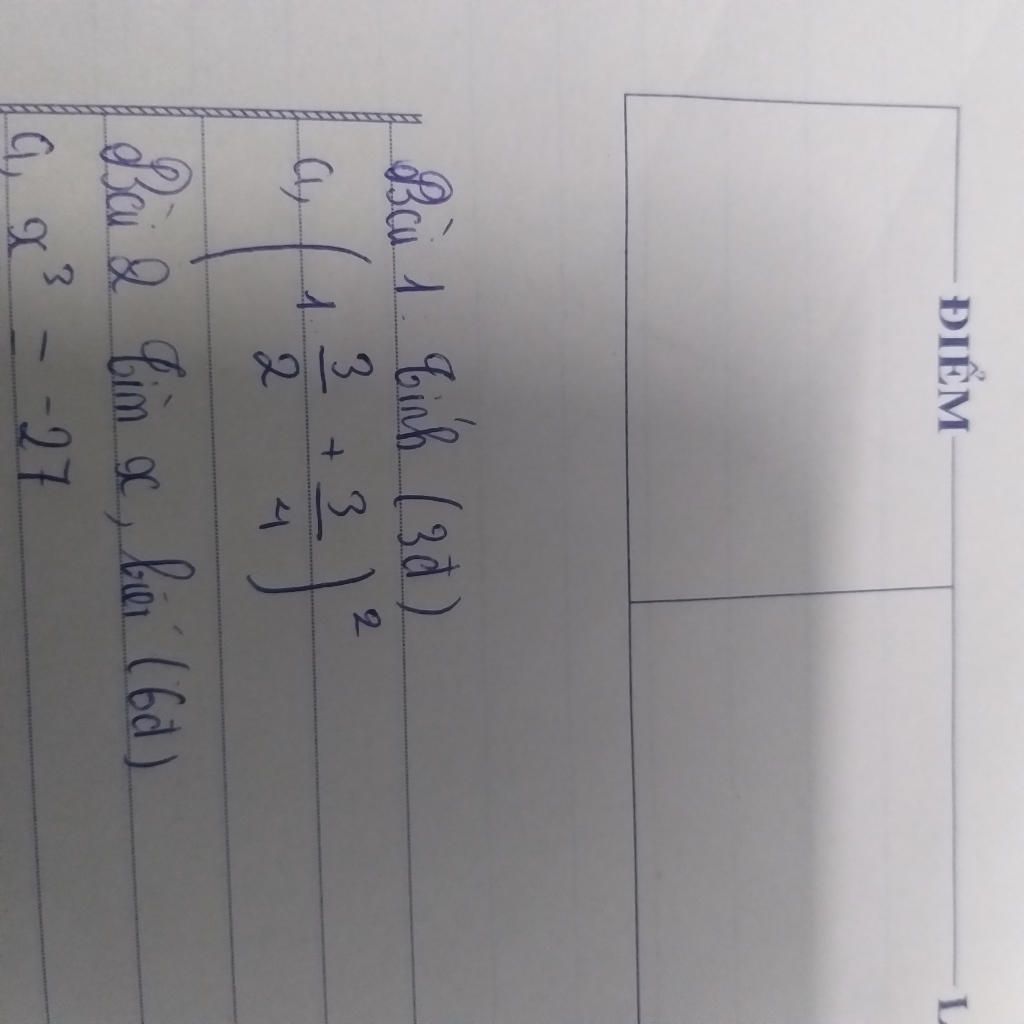 ĐIỂM
L
Bài 1. Tính (3đ)
a, (1 3/2 + 3/4)²
Bài 2 Tìm x, biết (6đ)
a, x³ = -27